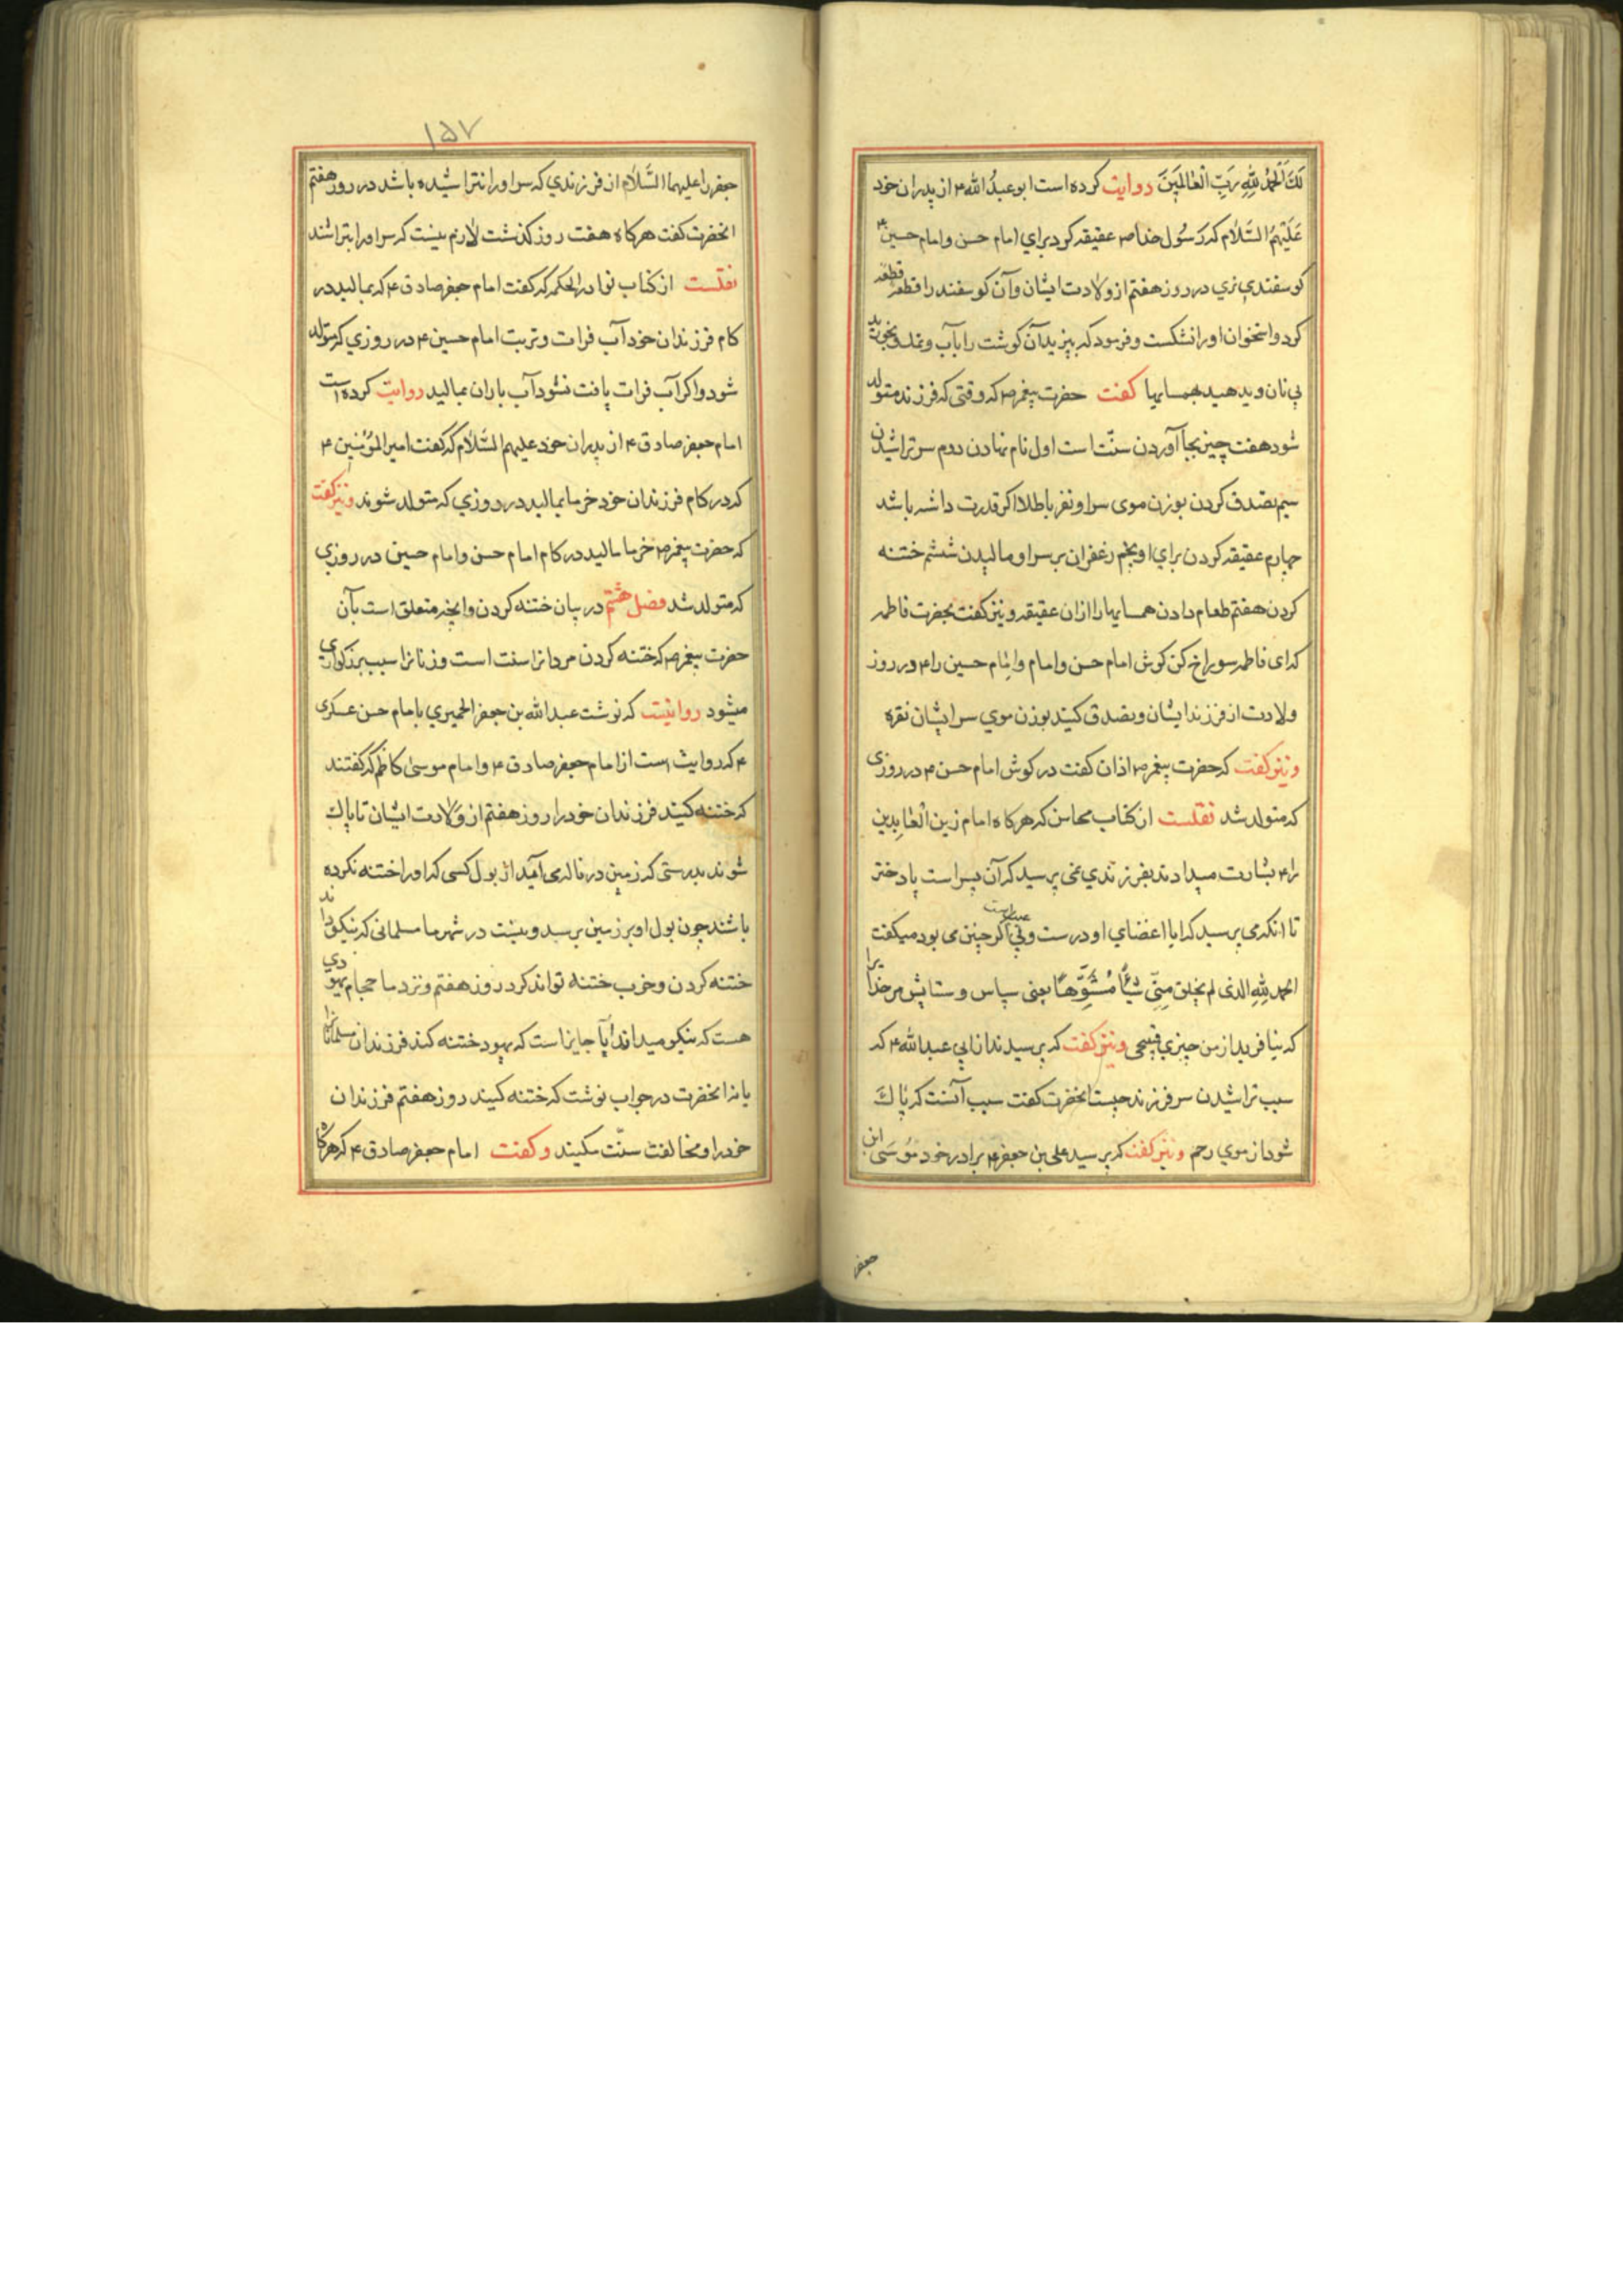 لَكَ الْحَمْدُ لِلّٰهِ رَبِّ الْعٰالَمِينَ روایت کرده است ابو عبدُ الله ۴ از پدران خود
عَلَيْهِمُ السَّلٰام که رَسُول خدا ص عقیقه کرد برای امام حسن و امام حسین ۴
کوسفندی نری در روز هفتم از ولادت ایشان و آن کوسفند را قطعه قطعه
کرد و استخوان او را نشکست و فرمود که بپزید آن کوشت را بآب و نمک و بخورید
بی نان و بدهید بهمسایها کفت حضرت پیغمبر ص که وقتی که فرزند متولد
شود هفت چیز بجا آوردن سنّت است اول نام نهادن دوم سر تراشیدن
سیم تصدق کردن بوزن موی سر او نقره یا طلا اکر قدرت داشته باشد
چهارم عقیقه کردن برای او پنجم زعفران بر سر او مالیدن ششم ختنه
کردن هفتم طعام دادن همسایها را ازان عقیقه و نیز کفت بحضرت فاطمه
که ای فاطمه سوراخ کن کوش امام حسن و امام و امام حسین را ۴ در روز
ولادت از فرزند ایشان و تصدق کنید بوزن موی سر ایشان نقره
و نیز کفت که حضرت پیغمبر ص اذان کفت در کوش امام حسن ۴ در روزی
که متولد شد نقلست از کتاب محاسن که هرکاه امام زین الْعٰابِدین
را ۴ بشارت میدادند بفرزندی نمی پرسید که آن پسر است یا دختر
تا انکه می پرسید که ایا اعضای او درست و بی عیب است اکر چنین می بود میکفت
الحمد لِلّٰهِ الذی لم یخلق مِنّی شَیْئًا مُشَوَّهًا یعنی سپاس و ستایش مر خدایرا
که نیافرید از من چیزی قبیحی و نیز کفت که پرسیدند از ابی عبد الله ۴ که
سبب تراشیدن سر فرزند چیست انحضرت کفت سبب آنست که پاک
شود از موی رحم و نیز کفت که پرسید علی بن جعفر ۴ برادر خود مُوسَی ابن
جعفر
۱۵۷
جعفر را علیهما السَّلٰام از فرزندی که سر او را نتراشیده باشد در روز هفتم
انحضرت کفت هرکاه هفت روز کذشت لازم نیست که سر او را بتراشند
نقلست از کتاب نوادر الحکمه که کفت امام جعفر صادق ۴ که بمالید در
کام فرزندان خود آب فرات و تربت امام حسین ۴ در روزی که متولد
شود و اکر آب فرات یافت نشود آب باران بمالید روایت کرده است
امام جعفر صادق ۴ از پدران خود علیهم السَّلٰام که کفت امیر المؤمنین ۴
که در کام فرزندان خود خرما بمالید در روزی که متولد شوند و نیز کفت
که حضرت پیغمبر ص خرما مالید در کام امام حسن و امام حسین در روزی
که متولد شد فصل هشتم در بیان ختنه کردن و انچه متعلق است بآن
حضرت پیغمبر ص که ختنه کردن مردانرا سنت است و زنانرا سبب بزرکواری
میشود روایتست که نوشت عبد الله بن جعفر الحمیری بامام حسن عسکری
۴ که روایت است از امام جعفر صادق ۴ و امام موسیٰ کاظم که کفتند
که ختنه کنید فرزندان خود را روز هفتم از ولادت ایشان تا پاک
شوند بدرستی که زمین در ناله می آید از بول کسی که او را ختنه نکرده
باشند چون بول او بر زمین برسد و نیست در شهر ما مسلمانی که نیکو داند
ختنه کردن و خوب ختنه تواند کرد روز هفتم و نزد ما حجام یهودی
هست که نیکو میداند آیا جایز است که یهود ختنه کند فرزندان مسلمانانرا
یا نه انحضرت در جواب نوشت که ختنه کنید روز هفتم فرزندان
خود را و مخالفت سنّت مکنید و کفت امام جعفر صادق ۴ که هرکاه